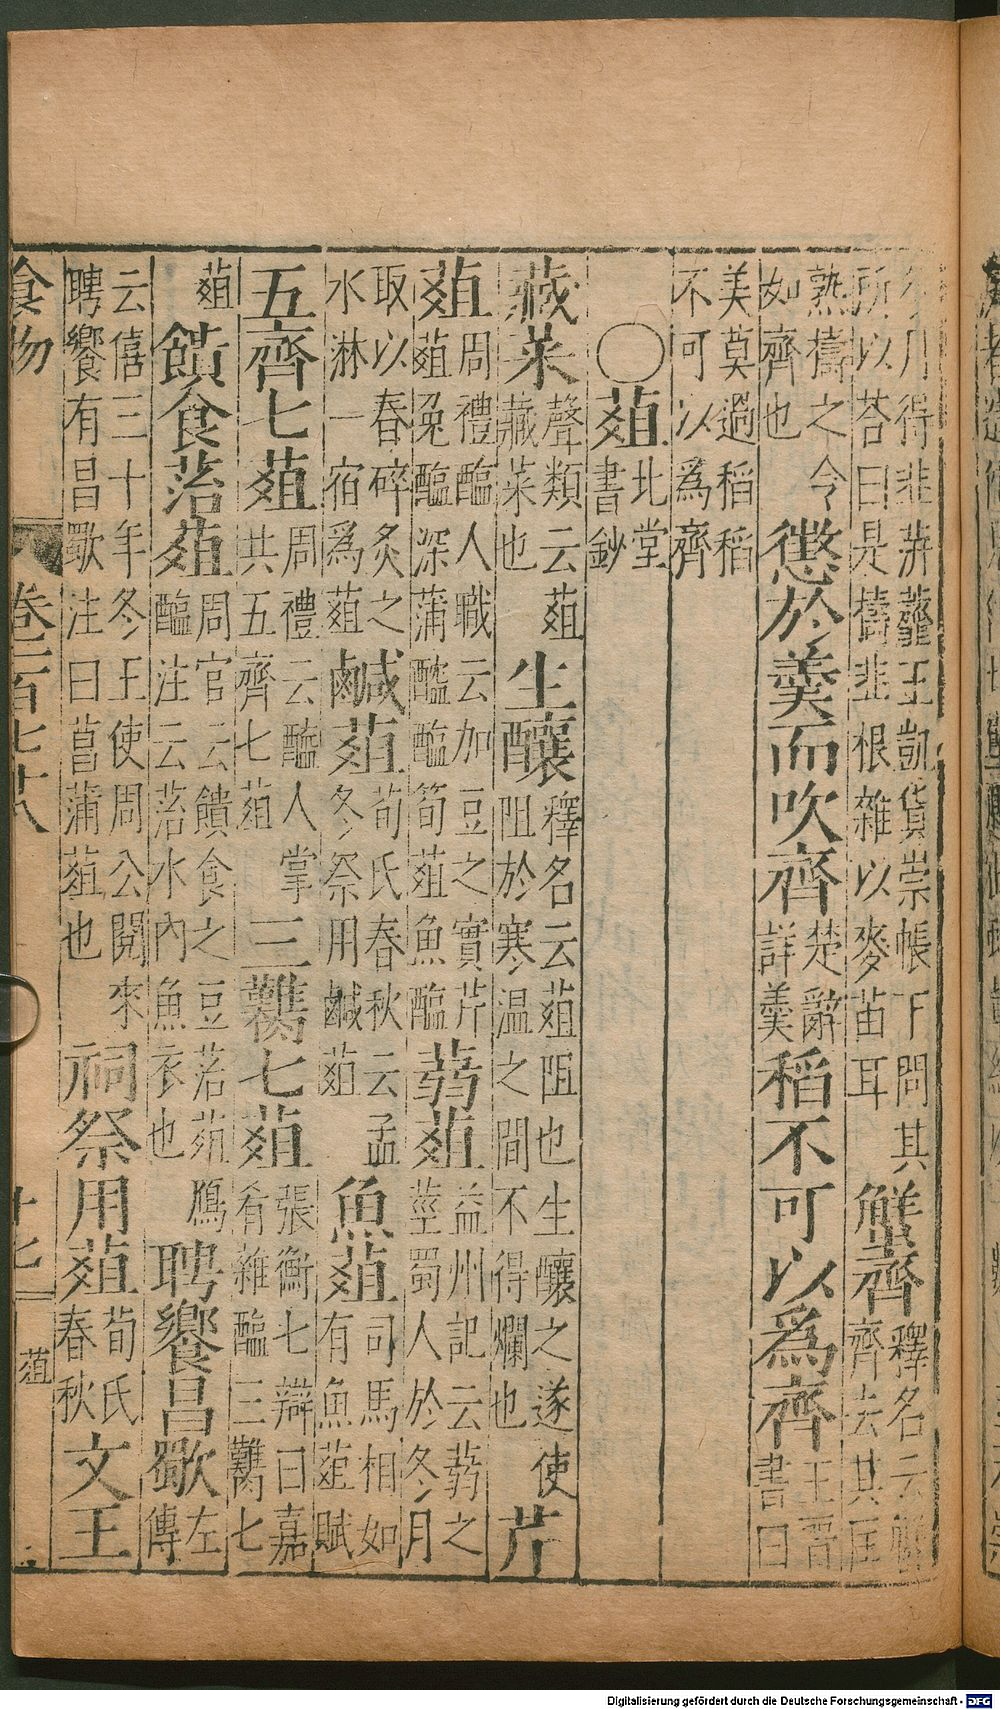 冬月得韭蓱虀王凱貨崇帳下問其
所以荅曰是擣韭根雜以麥苗耳
蟹齊
釋名云蟹
齊去其匡
熟擣之令
如齊也
懲於羹而吹齊
楚辭
詳羹
稻不可以爲齊
王晋
書曰
美莫過稻稻
不可以爲齊
○葅
北堂
書鈔
藏菜
聲類云葅
藏菜也
生釀
釋名云葅阻也生釀之遂使
阻於寒温之間不得爛也
芹
葅
周禮醢人職云加豆之實芹
葅兔醢深蒲醓醢筍葅魚醢
蒻葅
益州記云蒻之
莖蜀人於冬月
取以舂碎炙之
水淋一宿爲葅
鹹葅
荀氏春秋云孟
冬祭用鹹葅
魚葅
司馬相如
有魚葅賦
五齊七葅
周禮云醢人掌
共五齊七葅
三臡七葅
張衡七辯曰嘉
肴雜醢三臡七
葅
饋食菭葅
周官云饋食之豆菭葅鴈
醢注云菭水內魚衣也
聘饗昌歜
左
傳
云僖三十年冬王使周公閱來
聘饗有昌歜注曰菖蒲葅也
祠祭用葅
荀氏
春秋
文王
食物
卷一百七十八
十七
葅
Digitalisierung gefördert durch die Deutsche Forschungsgemeinschaft - DFG